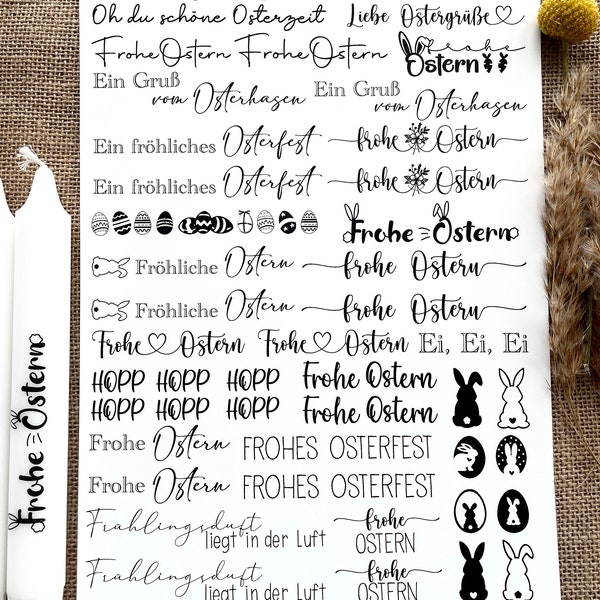 Oh du schöne Osterzeit Liebe Ostergrüße
Frohe Ostern Frohe Ostern frohe Ostern
Ein Gruß vom Osterhasen Ein Gruß vom Osterhasen
Ein fröhliches Osterfest frohe Ostern
Ein fröhliches Osterfest frohe Ostern
Frohe Ostern
Fröhliche Ostern frohe Ostern
Fröhliche Ostern frohe Ostern
Frohe Ostern Frohe Ostern Ei, Ei, Ei
HOPP HOPP HOPP Frohe Ostern
HOPP HOPP HOPP Frohe Ostern
Frohe Ostern FROHES OSTERFEST
Frohe Ostern FROHES OSTERFEST
Frühlingsduft liegt in der Luft frohe OSTERN
Frühlingsduft liegt in der Luft frohe OSTERN
Frohe Ostern